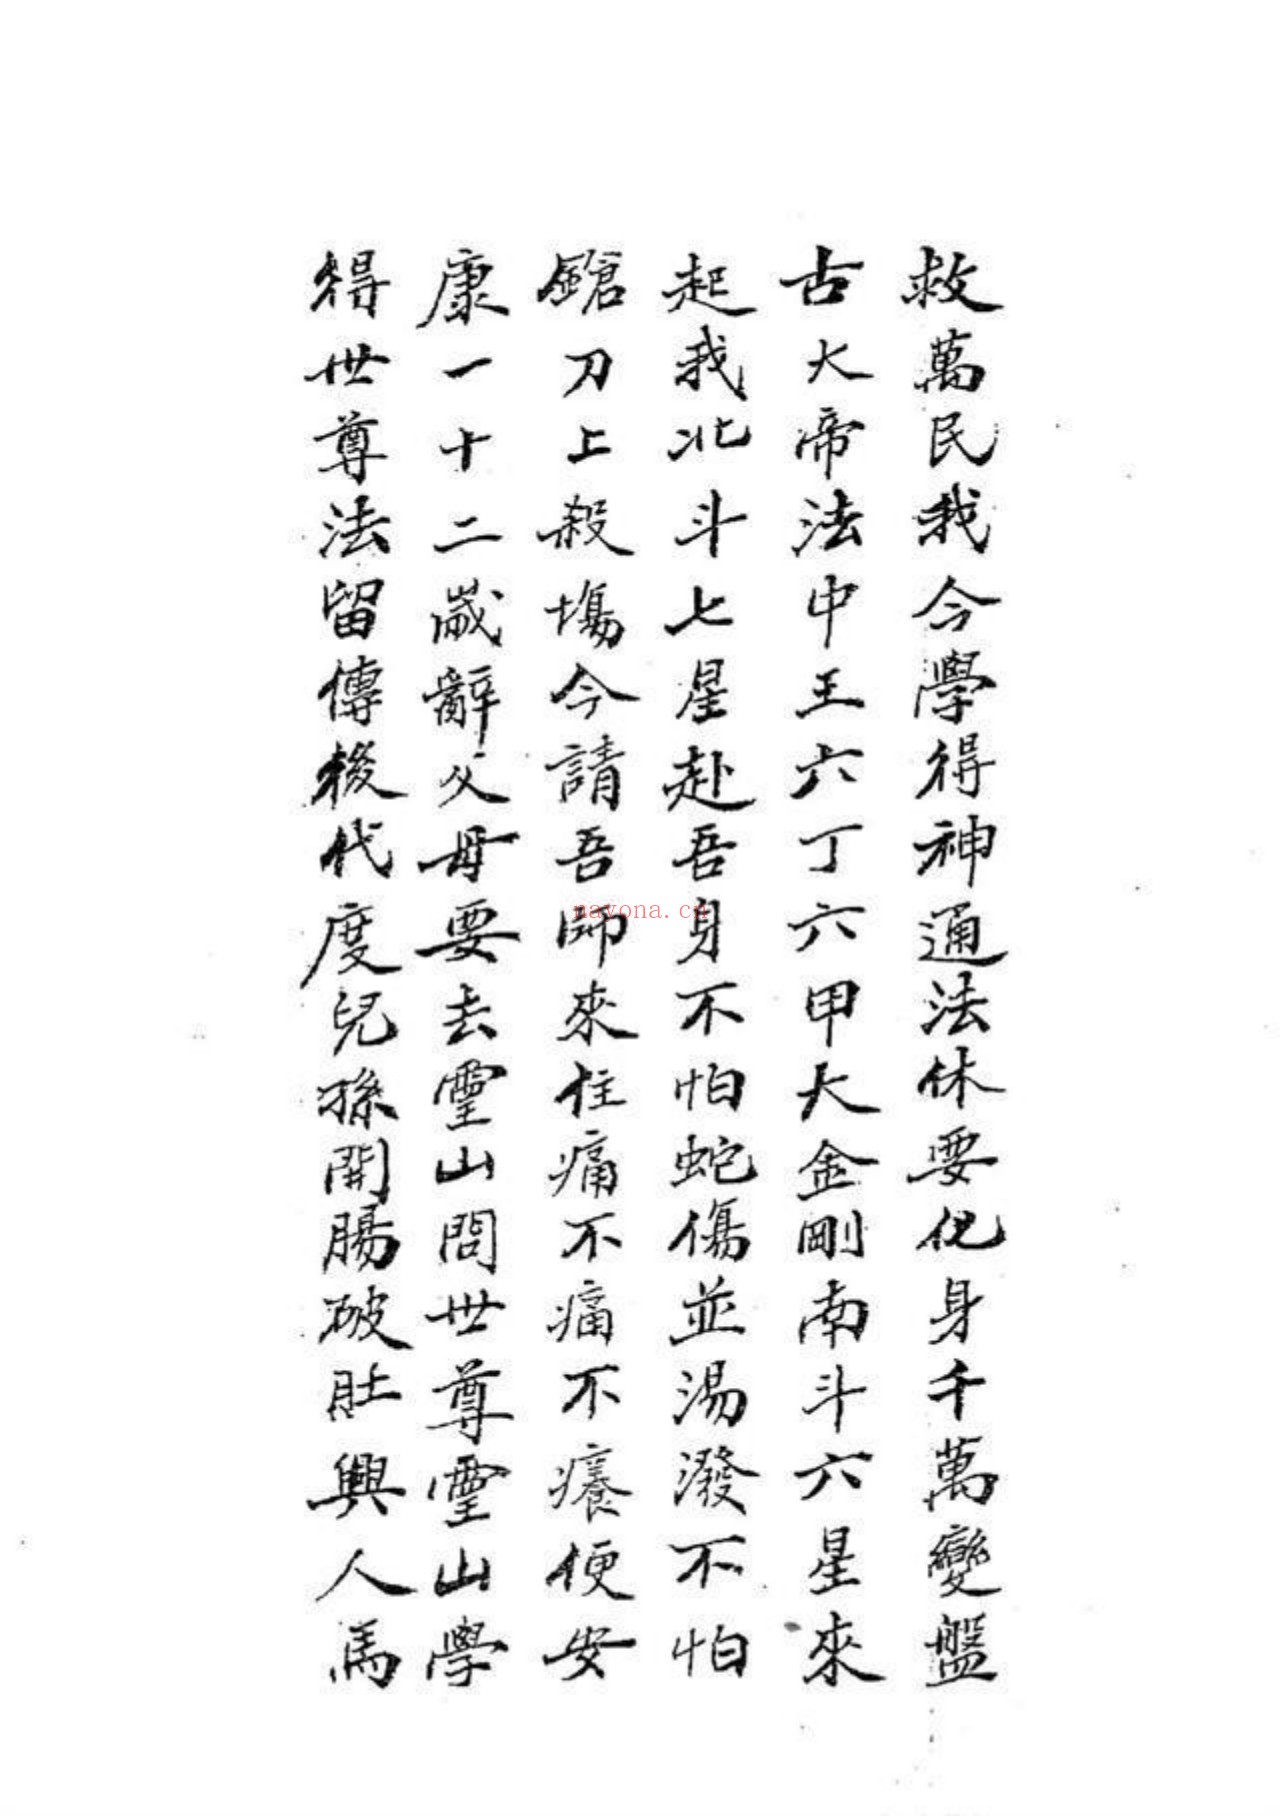 救萬民我今學得神通法休要化身千萬變盤
古大帝法中王六丁六甲大金剛南斗六星來
起我北斗七星赴吾身不怕蛇傷並湯潑不怕
鎗刀上殺塲今請吾師來住痛不痛不癢便安
康一十二歲辭父母要去靈山問世尊靈山學
得世尊法留傳後代度兒孫開腸破肚興人馬
nayona.cn